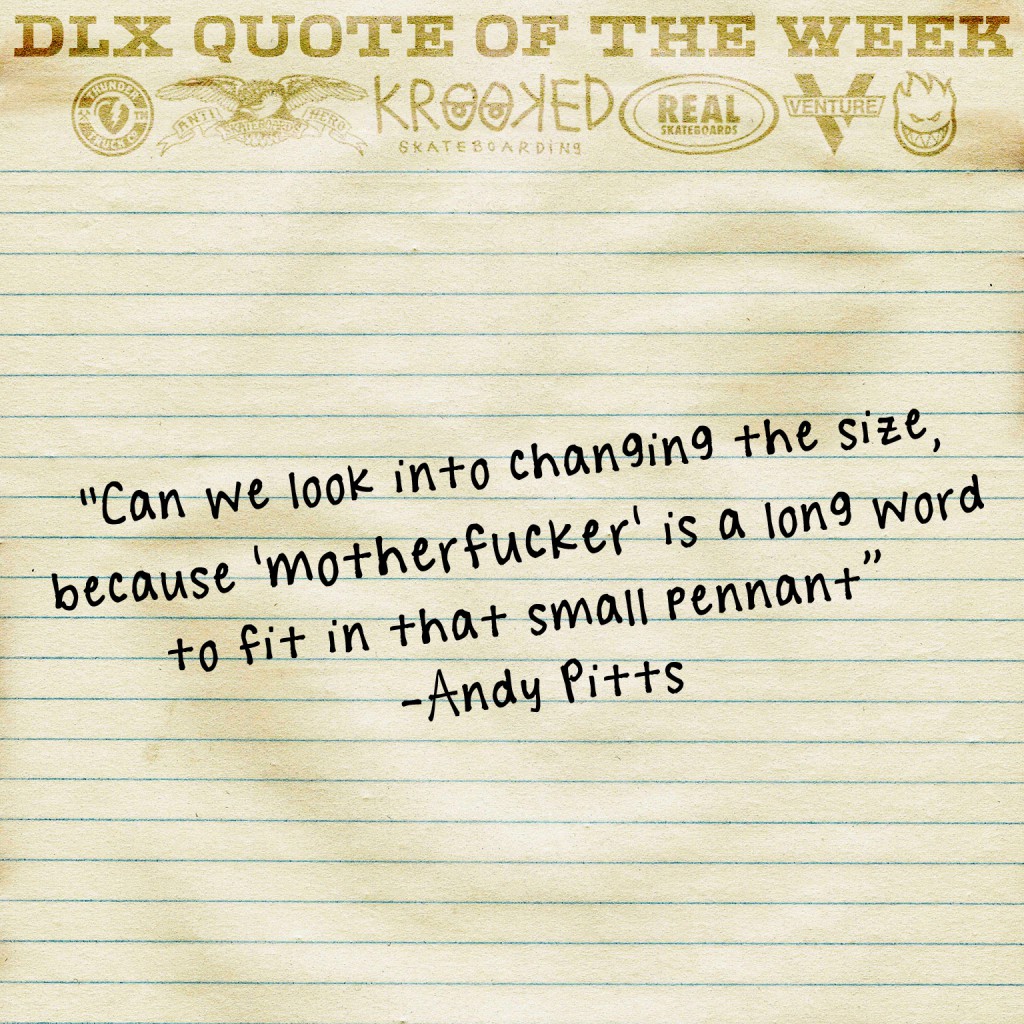 DLX QUOTE OF THE WEEK
THUNDER
TRUCK CO.
TM
ANTI HERO
SKATEBOARDS
KROOKED
SKATEBOARDING
REAL
SKATEBOARDS
VENTURE
"Can we look into changing the size,
because 'motherfucker' is a long word
to fit in that small pennant”
-Andy Pitts